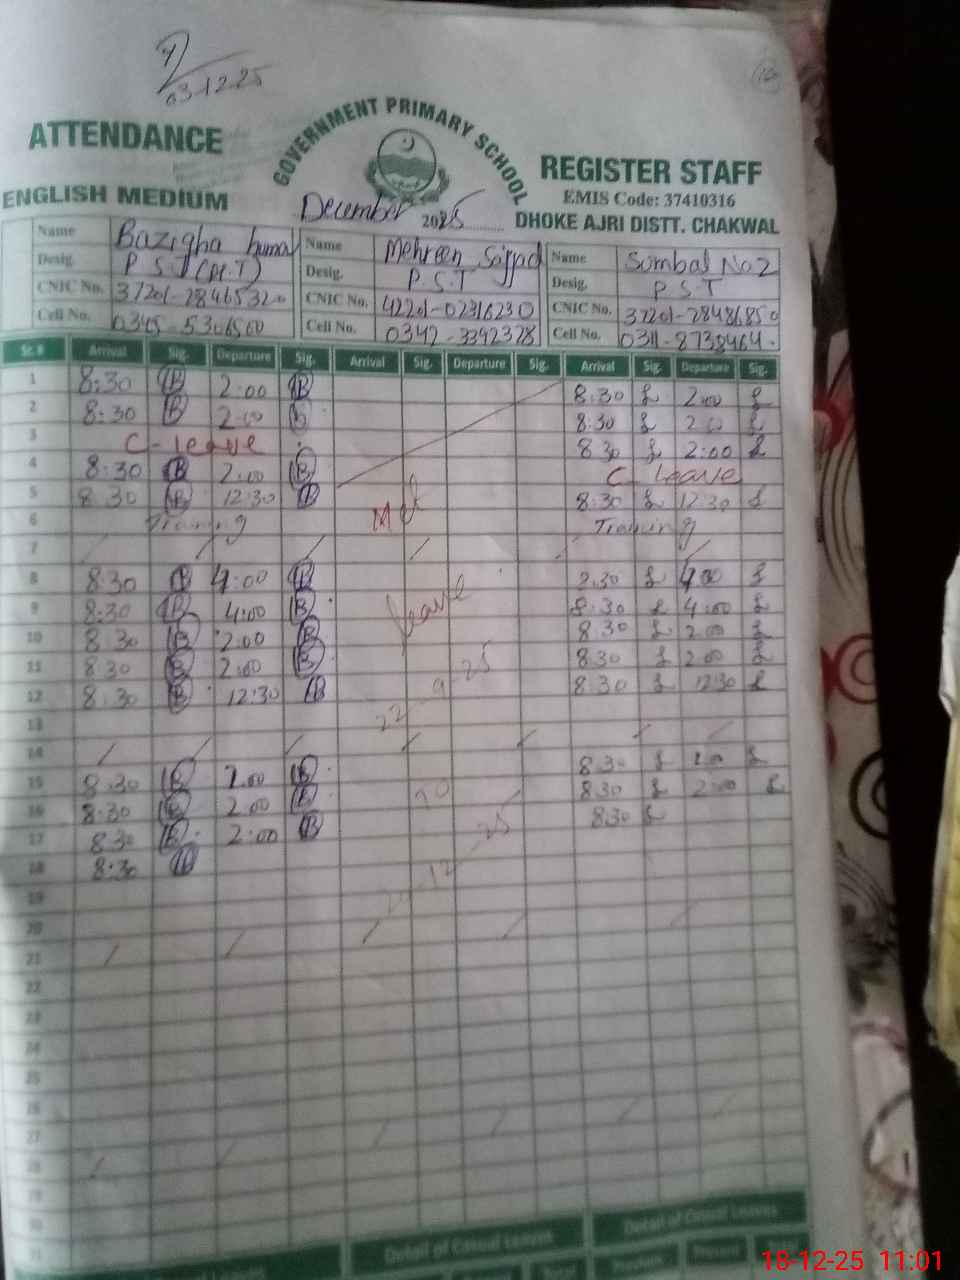 03-12-25
10
GOVERNMENT PRIMARY SCHOOL
ATTENDANCE
REGISTER STAFF
ENGLISH MEDIUM
EMIS Code: 37410316
December 2025
DHOKE AJRI DISTT. CHAKWAL
Name Bazigha huma Name Mehreen Sajjad Name Sumbal No 2
Desig. P S T Desig. P.S.T Desig. P S T
CNIC No. 37201-28465320 CNIC No. 42201-02316230 CNIC No. 37201-28486850
Cell No. 0345-5306500 Cell No. 0342-3392328 Cell No. 0311-8738464.
Sr.# Arrival Sig. Departure Sig. Arrival Sig. Departure Sig. Arrival Sig. Departure Sig.
1 8:30 B 2:00 B 8:30 2:00
2 8:30 B 2:00 8:30 2:00
3 C-leave 8:30 2:00
4 8:30 B 2:00 B C-Leave
5 8:30 B 12:30 B 8:30 12:30
6 Training Training
7
8 8:30 B 4:00 B 8:30 4:00
9 8:30 B 4:00 B leave 8:30 4:00
10 8:30 B 2:00 B 8:30 2:00
11 8:30 B 2:00 B 8:30 2:00
12 8:30 B 12:30 B 22-9-25 8:30 12:30
13
14
15 8:30 B 2:00 B 8:30 2:00
16 8:30 B 2:00 B to 8:30 2:00
17 8:30 B 2:00 B 8:30
18 8:30 B
19
20
21
22
23
24
25
26
27
28
29
30
31
Detail of Casual Leaves Detail of Casual Leaves
Present
18-12-25 11:01